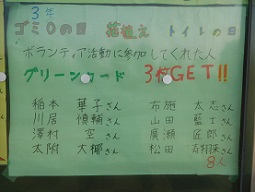 3年
ゴミ0の日 苗植え トイレの日
ボランティア活動に参加してくれた人
グリーンカード 3枚GET!!
稲本 華子さん 布施 太志さん
川居 慎輔さん 山田 藍士さん
澤村 空さん 廣瀬 匠郎さん
太附 大椰さん 松田 さん
8人